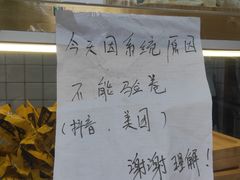 今天因系统原因
不能验卷
(抖音、美团)
谢谢理解!